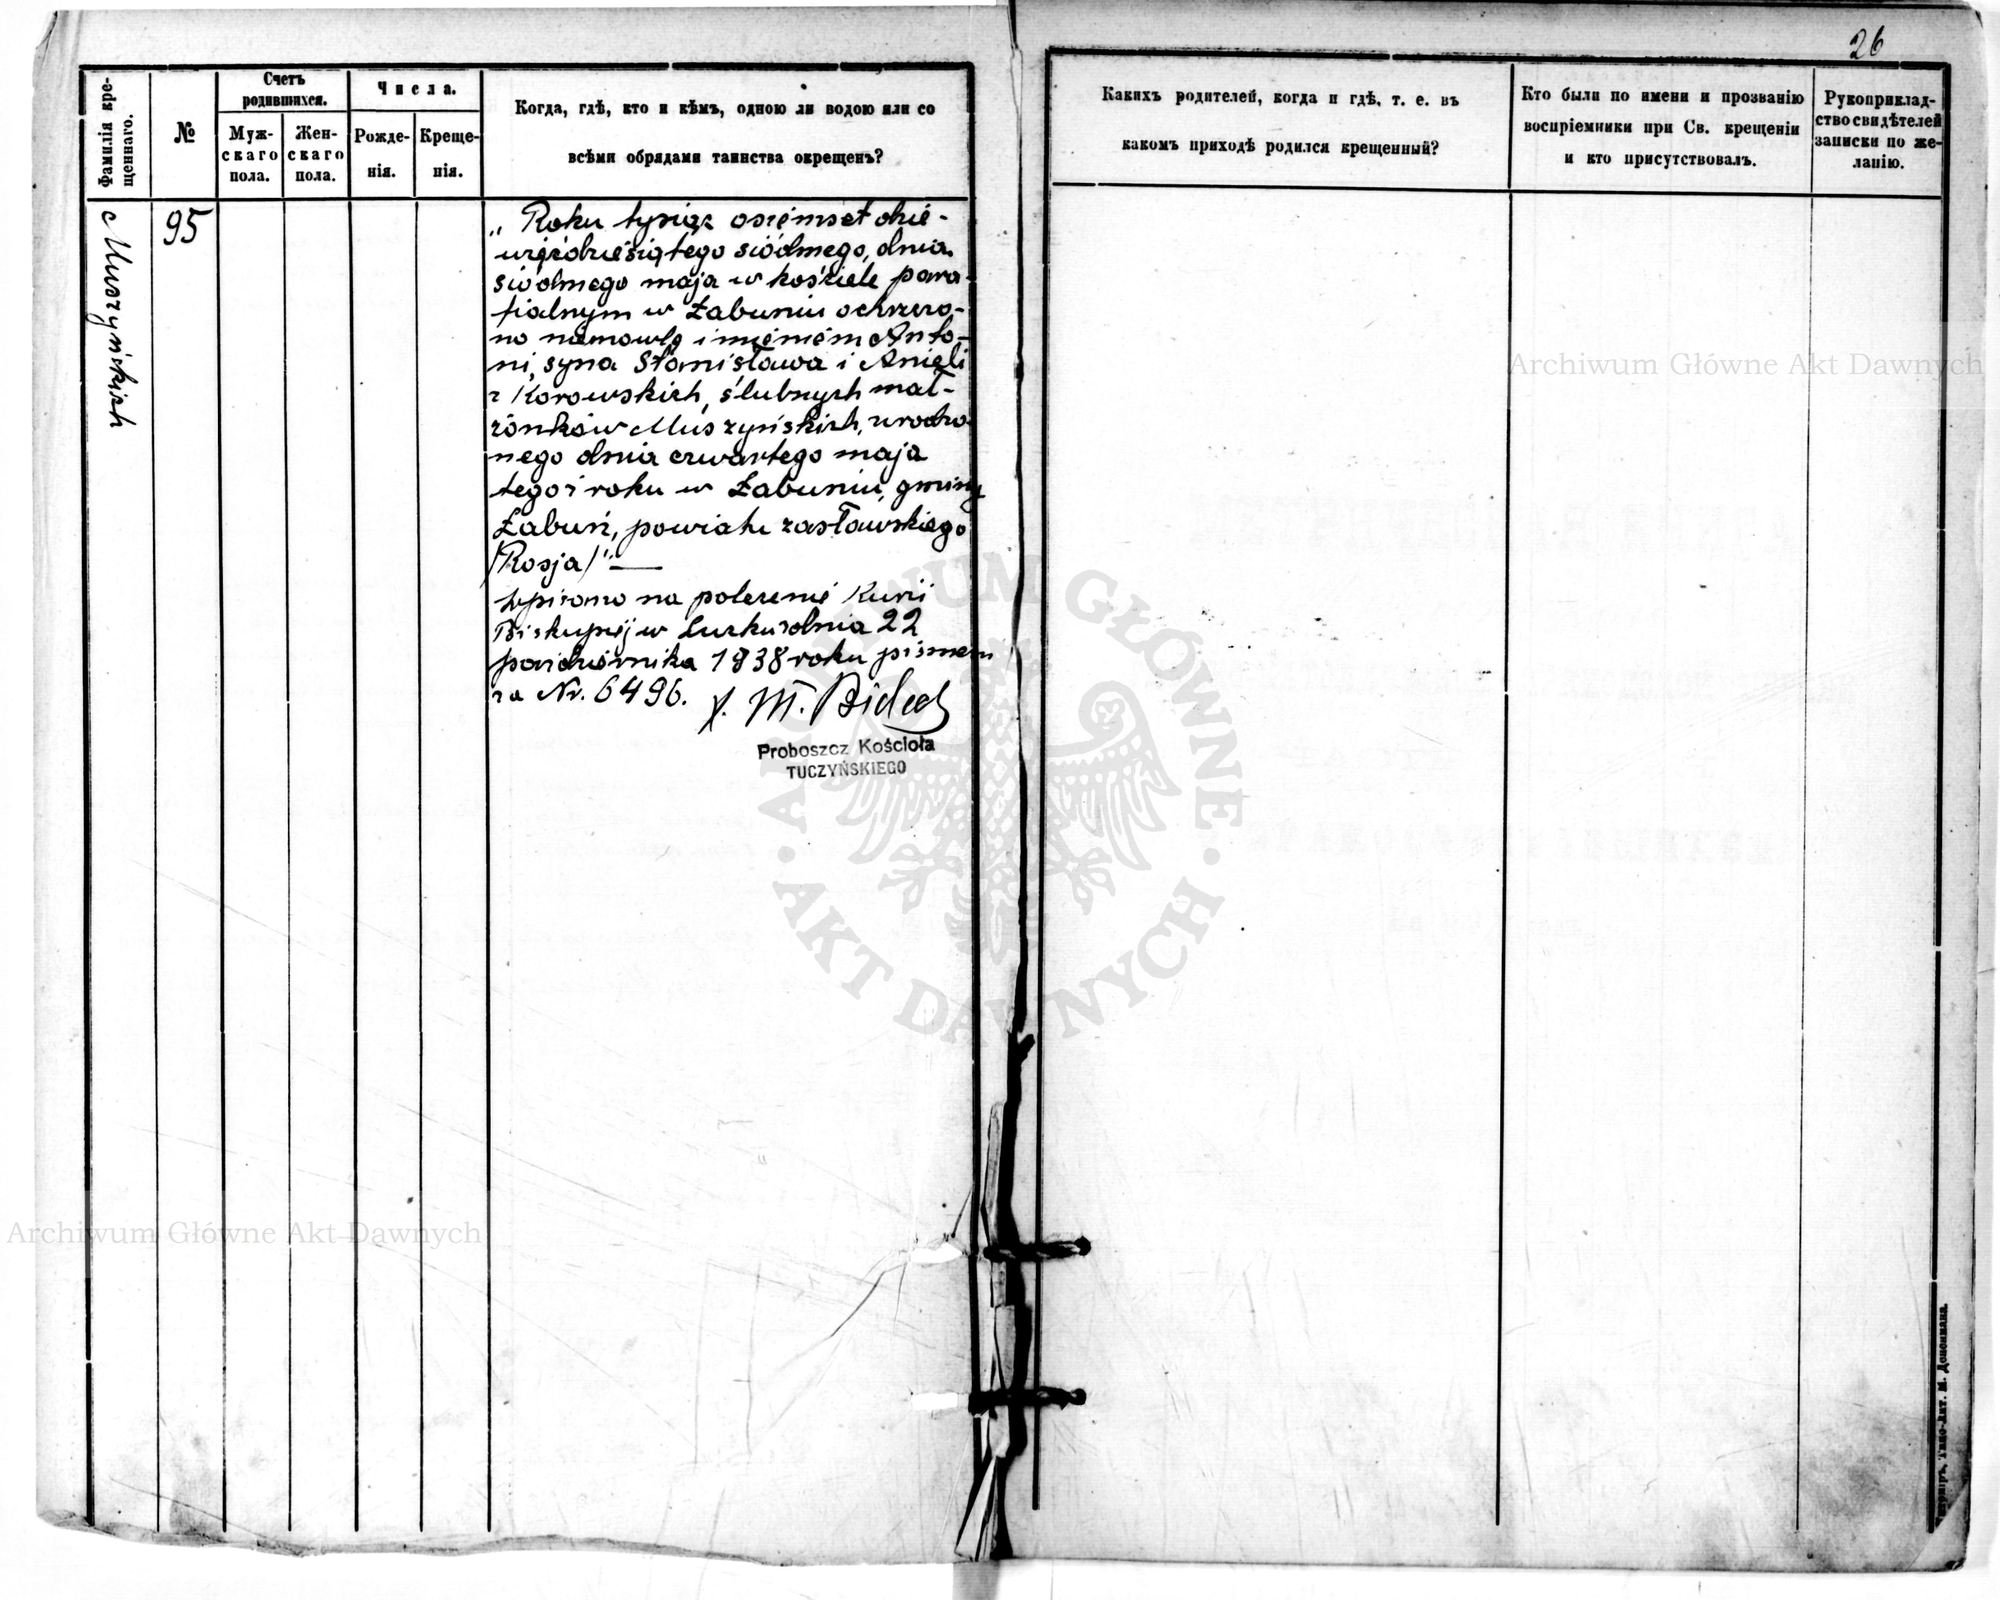 26
Фамилія кре-
щеннаго.
№
Счетъ
родившихся.
Муж-
скаго
пола.
Жен-
скаго
пола.
Числа.
Рожде-
нія.
Креще-
нія.
Когда, гдѣ, кто и кѣмъ, одною ли водою или со
всѣми обрядами таинства окрещенъ?
Какихъ родителей, когда и гдѣ, т. е. въ
какомъ приходѣ родился крещенный?
Кто были по имени и прозванію
воспріемники при Св. крещеніи
и кто присутствовалъ.
Рукоприклад-
ство свидѣтелей
записки по же-
ланію.
Muszyńskich
95
„Roku tysiąc osiemset dzie-
więćdziesiątego siódmego, dnia
siódmego maja w kościele para-
fialnym w Łabuniu ochrzczo-
no niemowlę imieniem Anto-
ni, syna Stanisława i Anieli
z Korowskich, ślubnych mał-
żonków Muszyńskich, urodzo-
nego dnia czwartego maja
tegoż roku w Łabuniu, gminy
Łabuń, powiatu zasławskiego
/Rosja/"—
Wpisano na polecenie Kurii
Biskupiej w Łucku z dnia 22
października 1938 roku pismem
za Nr. 6496. X. M.
Proboszcz Kościoła
TUCZYŃSKIEGO
Archiwum Główne Akt Dawnych
Archiwum Główne Akt Dawnych
ARCHIWUM GŁÓWNE
AKT DAWNYCH
Житомиръ, Типо-Лит. М. Дененмана.